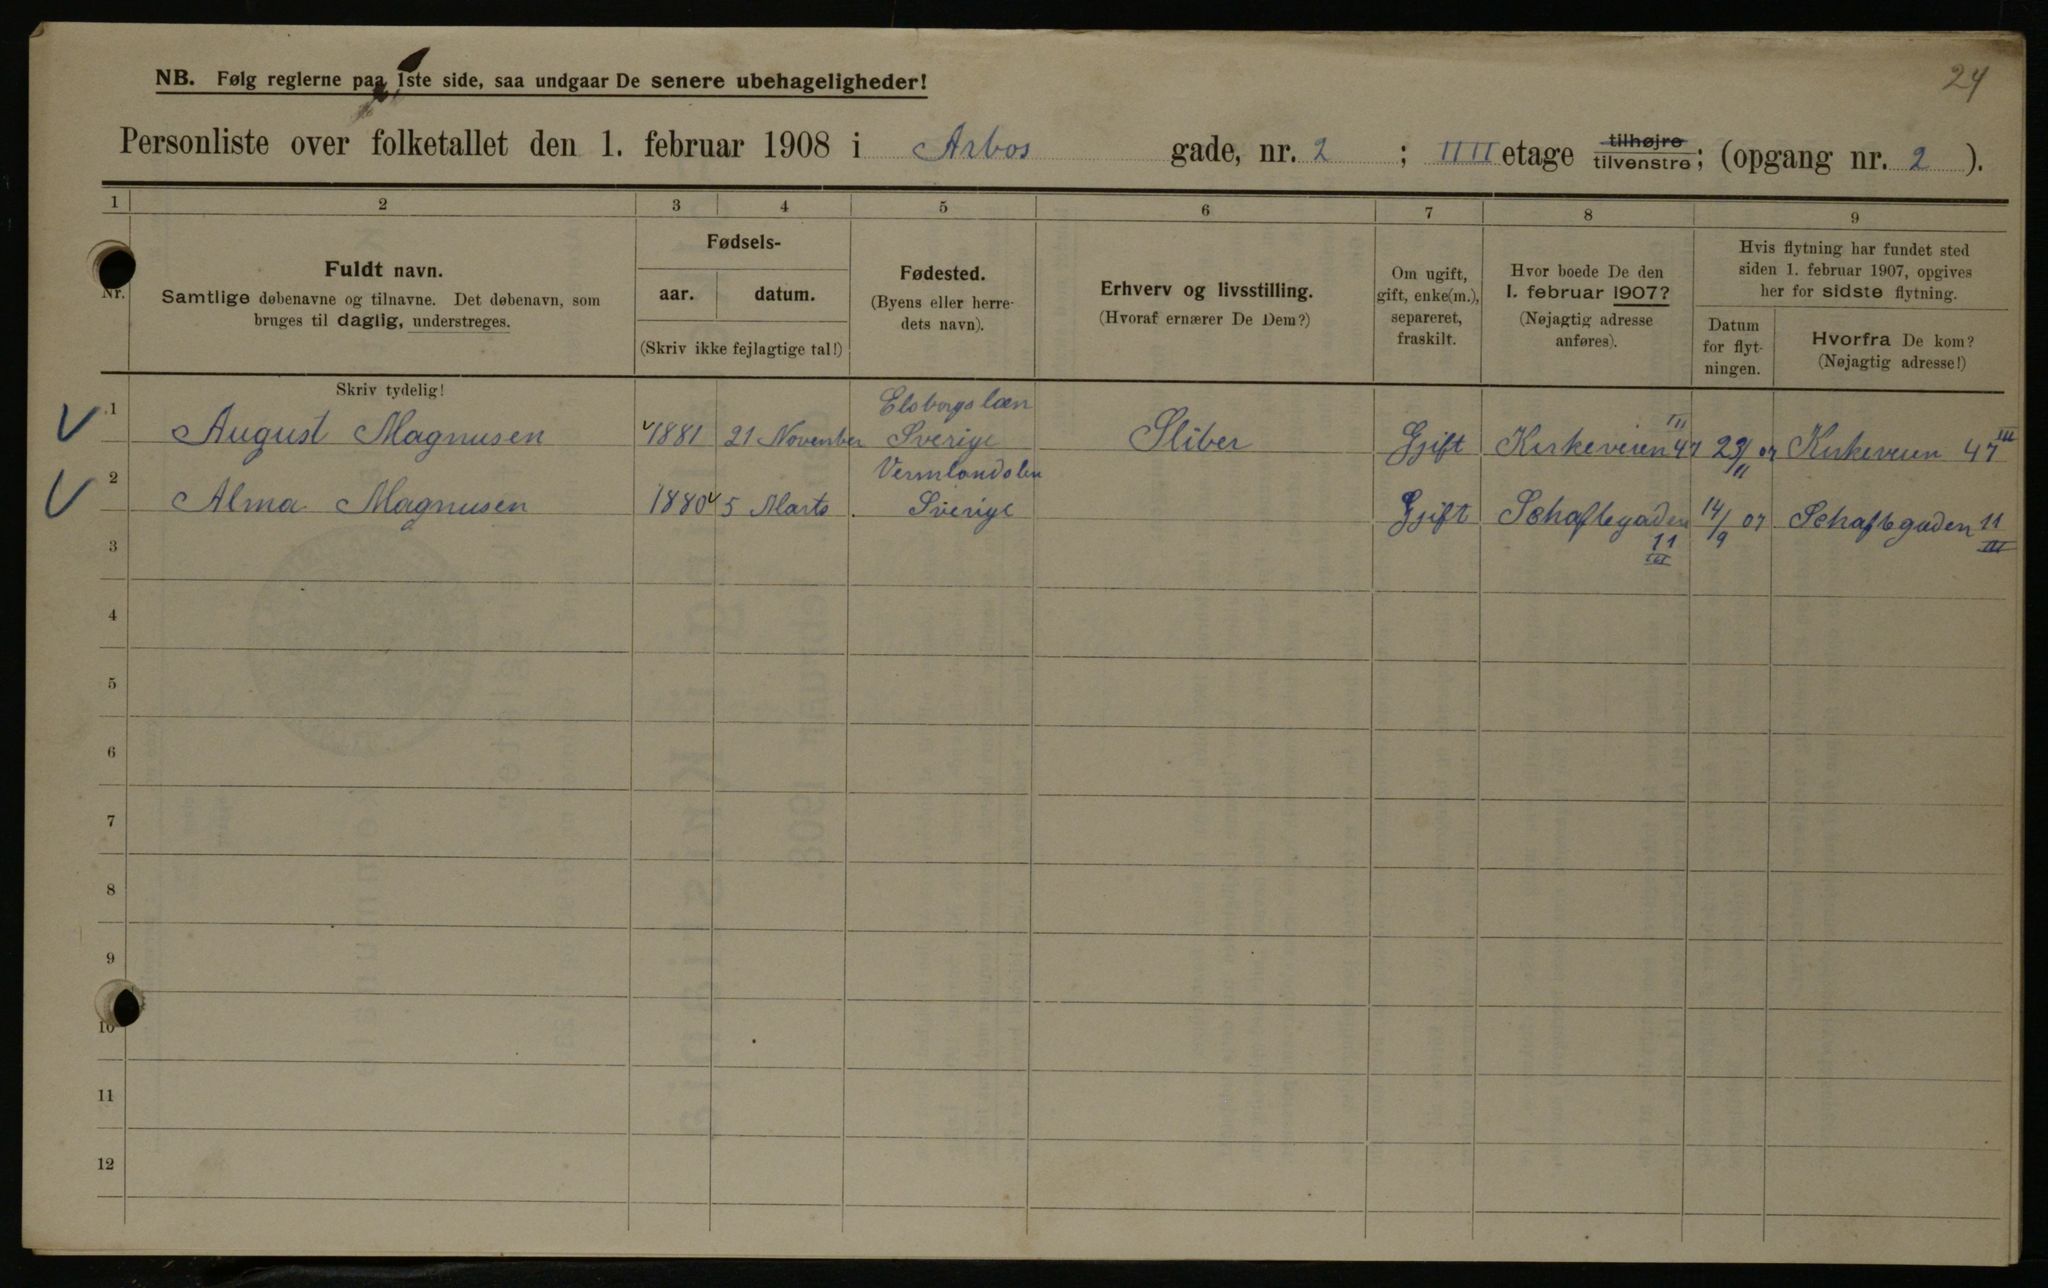 24
NB. Følg reglerne paa 1ste side, saa undgaar De senere ubehageligheder!
Personliste over folketallet den 1. februar 1908 i Arbos gade, nr. 2 ; IIII etage tilhøjre tilvenstre; (opgang nr. 2 ).
1 2 3 4 5 6 7 8 9
Nr.
Fuldt navn.
Samtlige døbenavne og tilnavne. Det døbenavn, som
bruges til daglig, understreges.
Skriv tydelig!
Fødsels-
aar. datum.
(Skriv ikke fejlagtige tal!)
Fødested.
(Byens eller herre-
dets navn).
Erhverv og livsstilling.
(Hvoraf ernærer De Dem?)
Om ugift,
gift, enke(m.),
separeret,
fraskilt.
Hvor boede De den
1. februar 1907?
(Nøjagtig adresse
anføres).
Hvis flytning har fundet sted
siden 1. februar 1907, opgives
her for sidste flytning.
Datum
for flyt-
ningen.
Hvorfra De kom?
(Nøjagtig adresse!)
Elsborgs læn III III
1 August Magnusen 1881 21 November Sverige Sliber Gjift Kirkeveien 47 07 Kirkeveien 47
11
Vermlandslen
2 Alma Magnusen 1880 5 Marts Sverige Gjift Schaftegaden 14/9 07 Schaftegaden 11
11 III
III
3
4
5
6
7
8
9
10
11
12